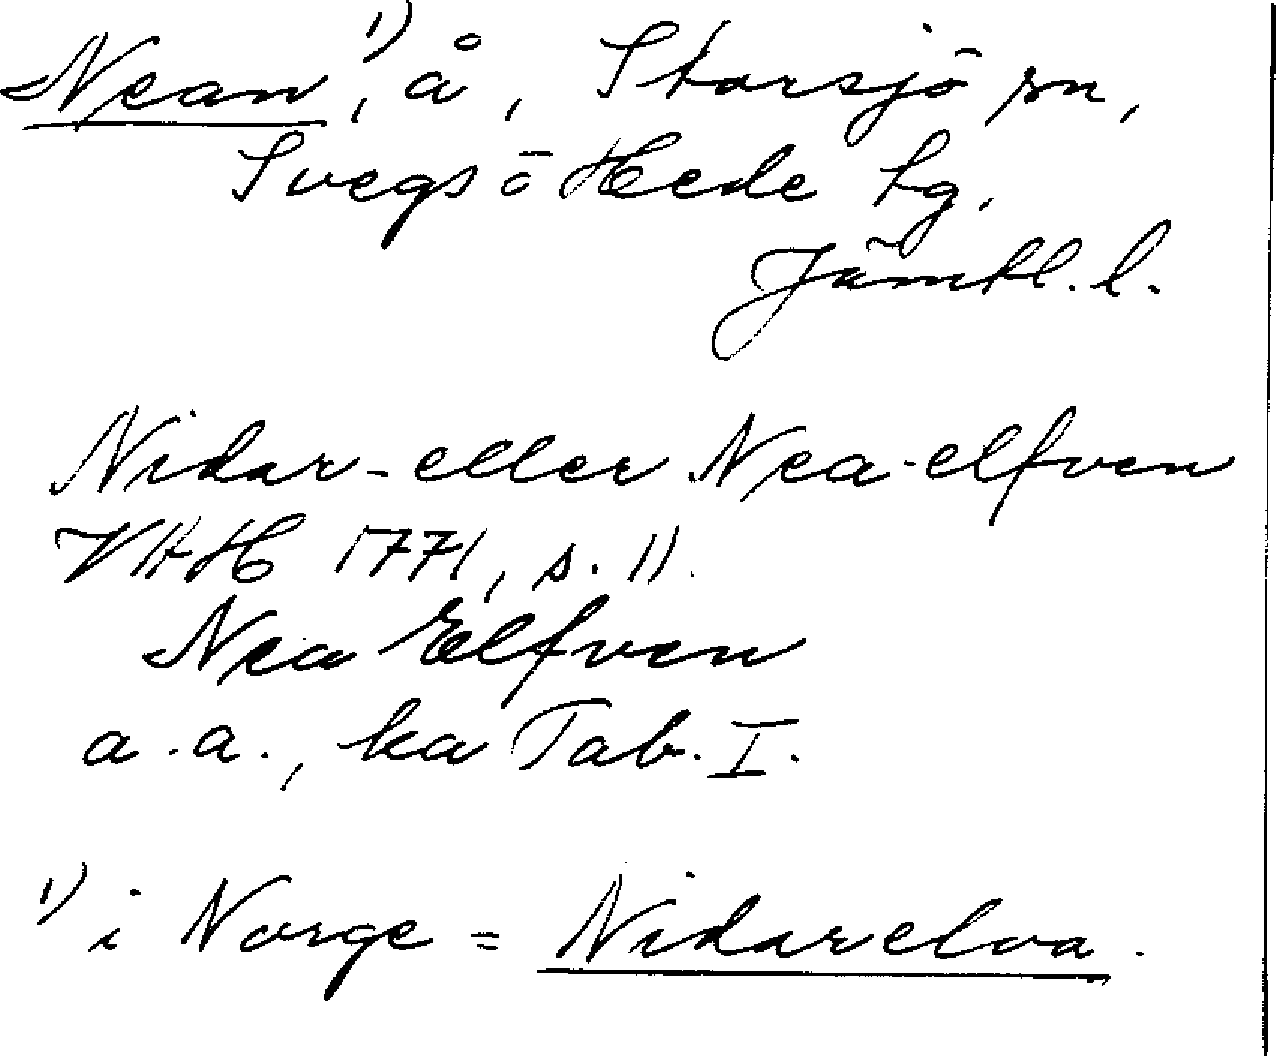 Nean¹⁾, å, Storsjö sn,
Svegs o Hede tg.
Jämtl. l.
Nidar- eller Nea-elfven
VAH 1771, s. 11.
Nea Elfven
a.a., ka Tab. I.
¹⁾ i Norge = Nidarelva.